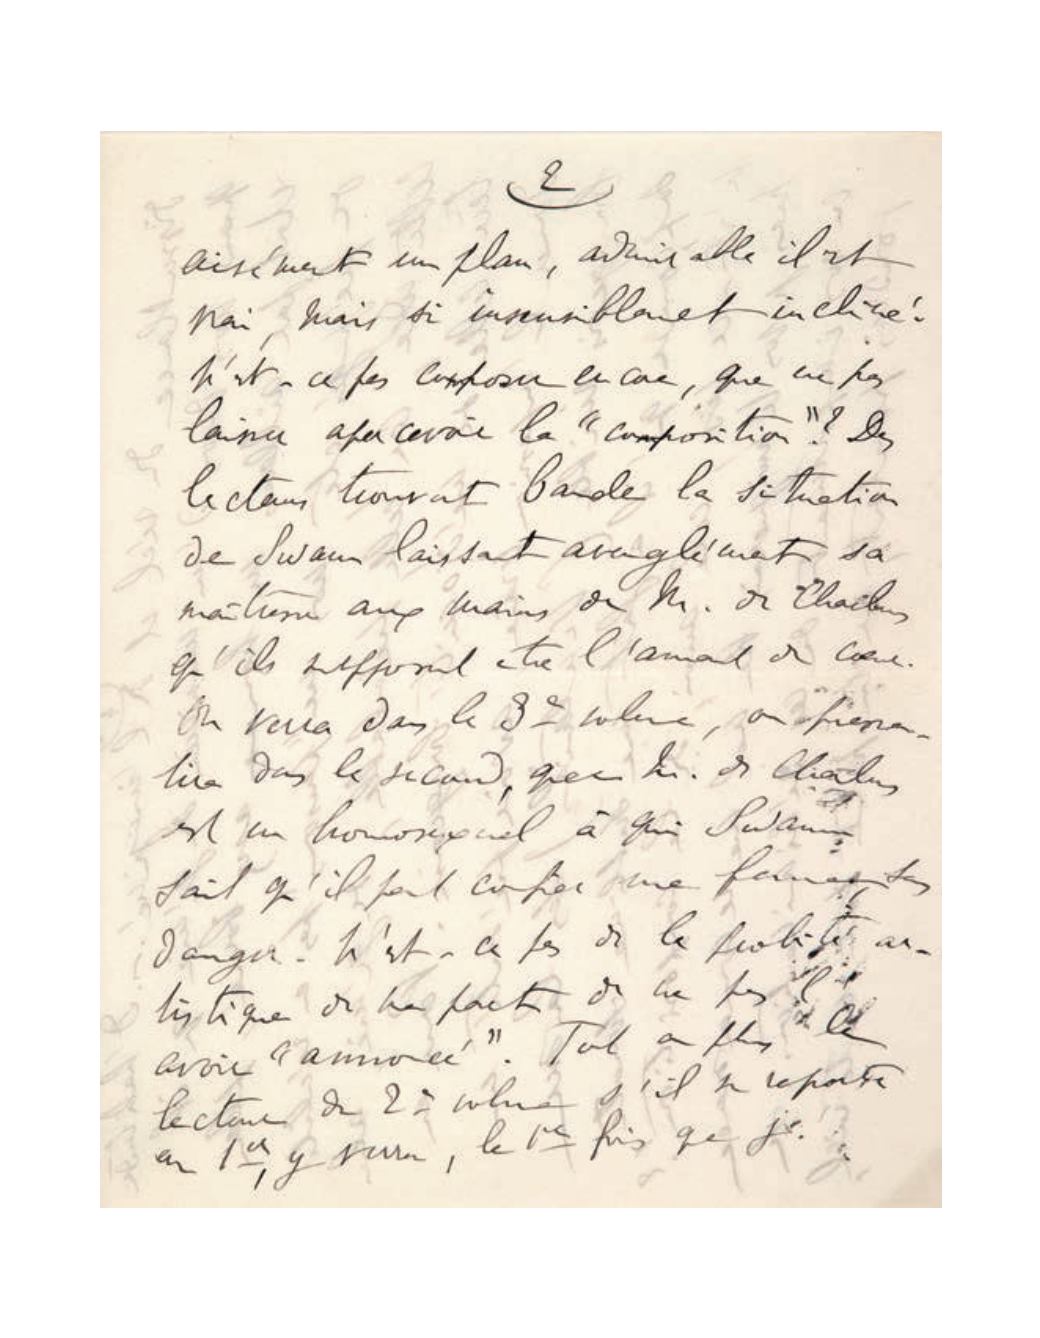 2
aisément un plan, admirable il est
vrai, mais si insensiblement incliné.
N'est-ce pas composer encore, que ne pas
laisser apercevoir la "composition"? Des
lecteurs trouvent banale la situation
de Swann laissant aveuglément sa
maîtresse aux mains de M. de Charlus
qu'ils supposent être l'amant de cœur.
On verra dans le 3e volume, on pressen-
tira dans le second, que M. de Charlus
est un homosexuel à qui Swann
sait qu'il peut confier une femme, sans
danger. N'est-ce pas de la probité ar-
tistique de ma part de ne pas l'
avoir "annoncé". Tout au plus le
lecteur du 2e volume s'il se reporte
au 1er, y verra, la 1re fois que je